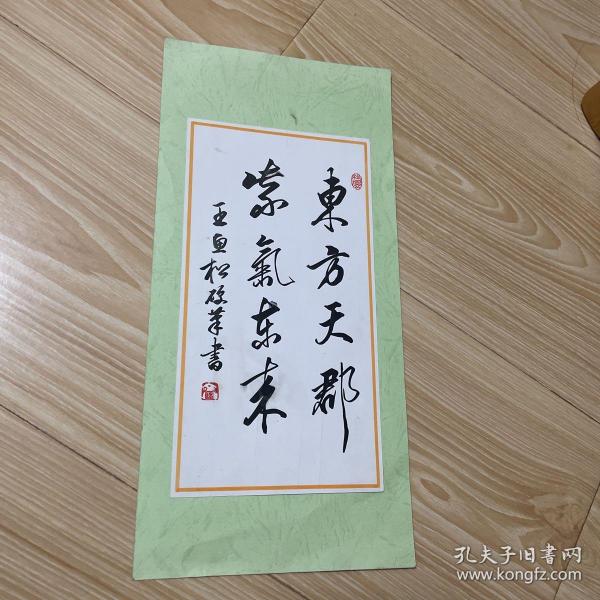 東方天郡
紫氣东来
王鱼松硬筆書
孔夫子旧書网
www.kongfz.com